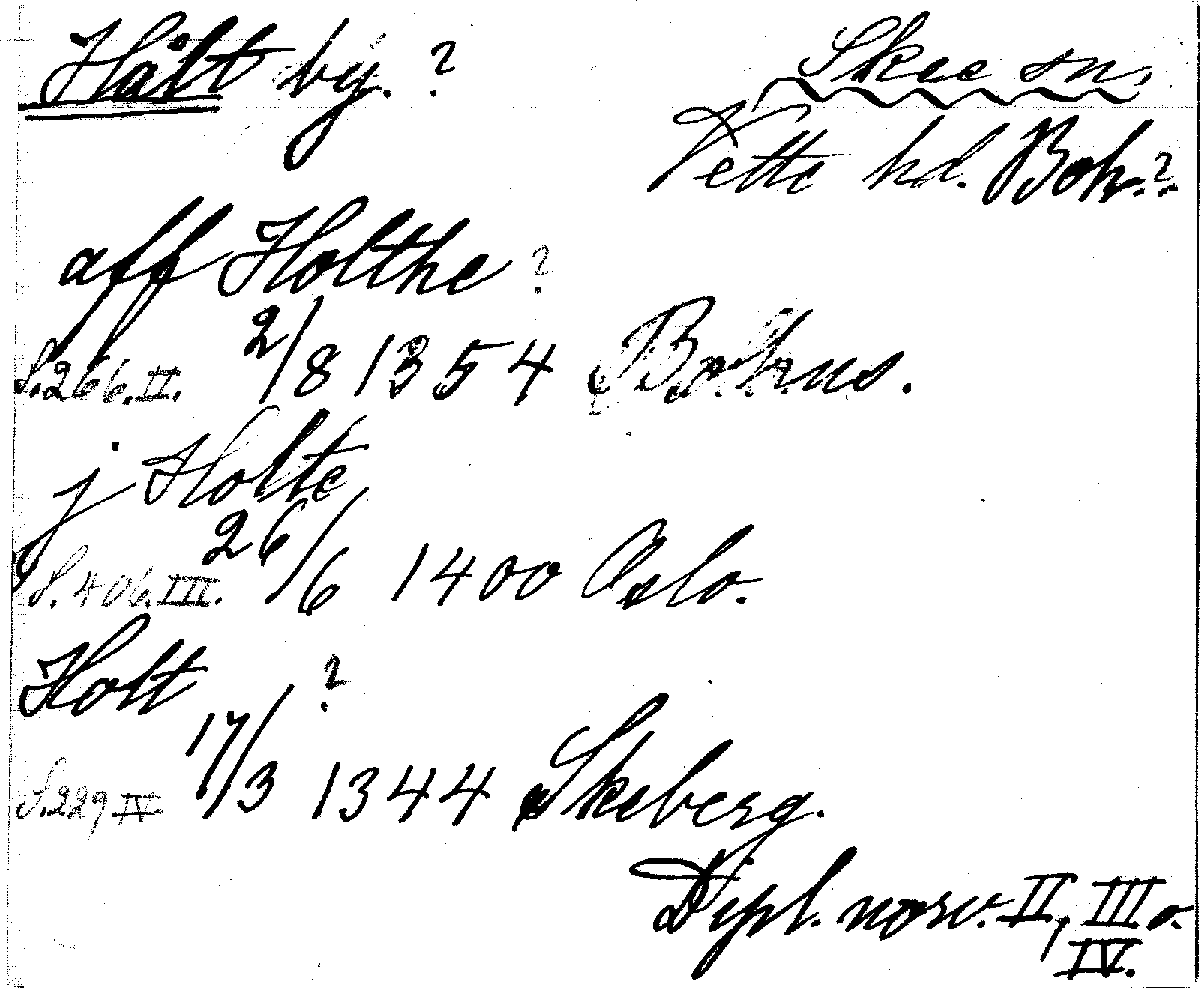 Hålt by. ?
Skee sn.
Vette hd. Boh.?
aff Holthe ?
S.266.II. 2/8 1354 Bohus.
j Holte
S.406.III. 26/6 1400 Oslo.
Holt ?
S.229 IV 17/3 1344 Skeberg.
Dipl. norv. II, III o.
IV.